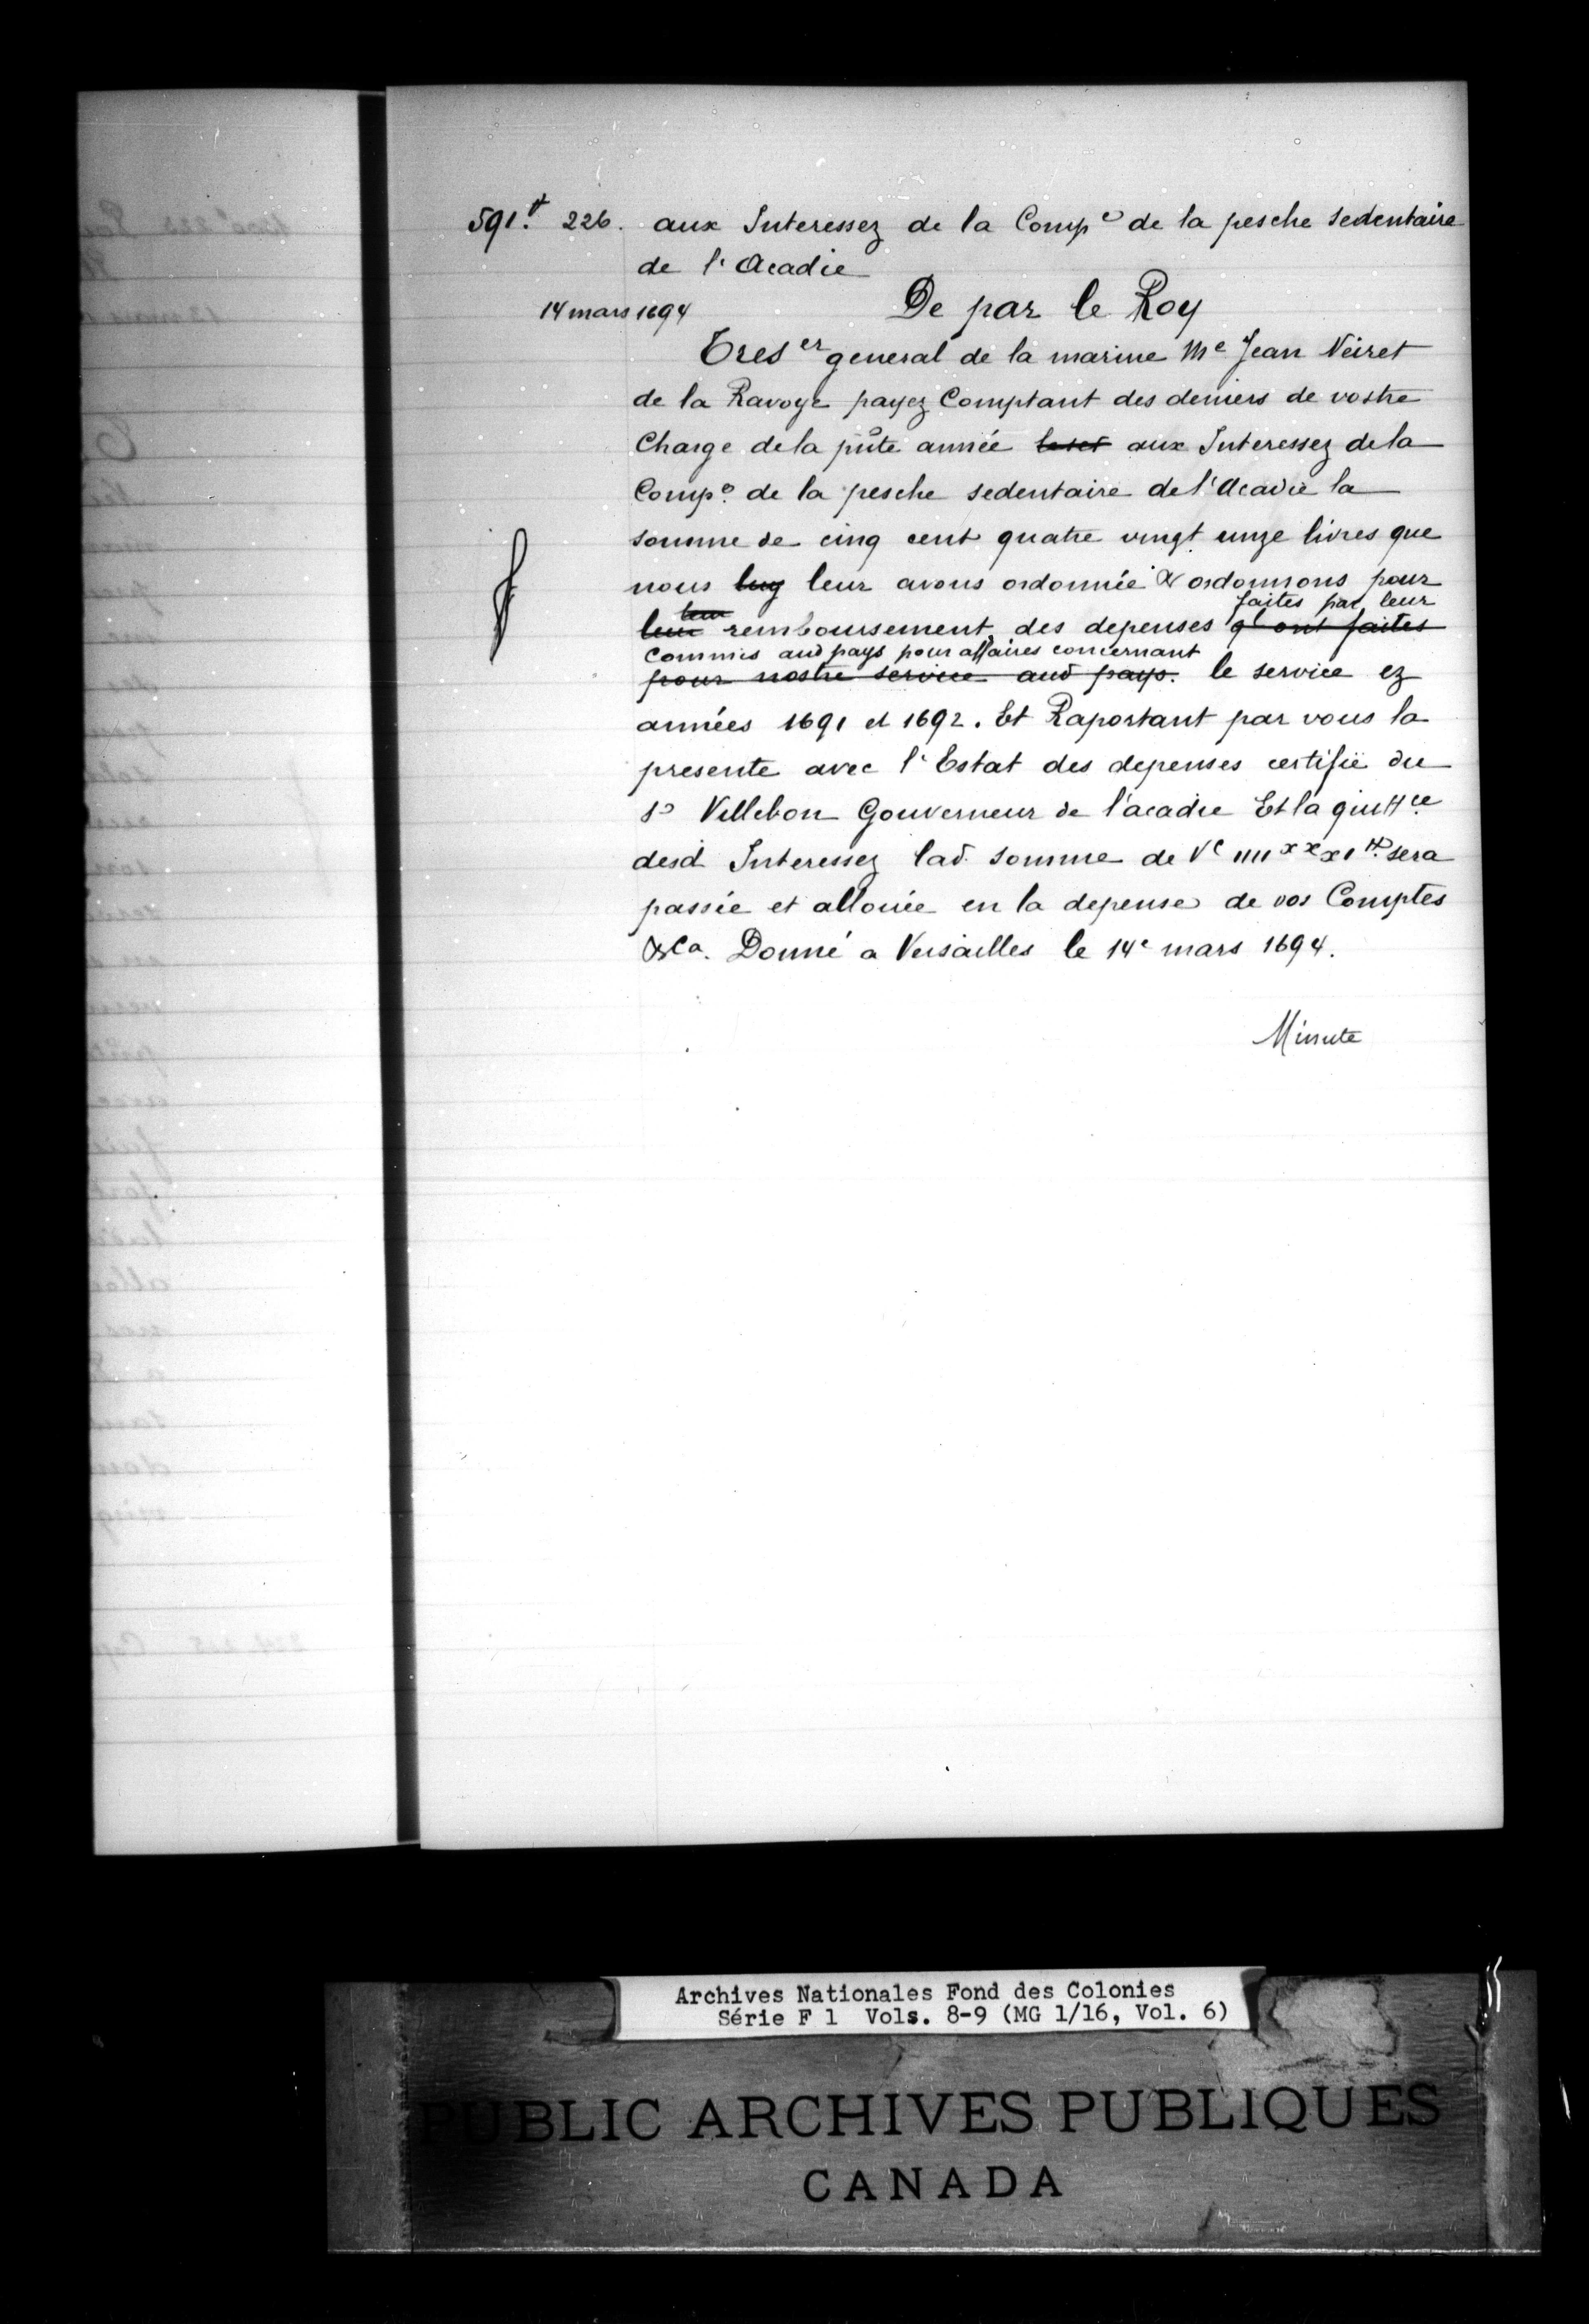 591.# 226. aux Interessez de la Comp.e de la pesche sedentaire
de l'Acadie
14 mars 1694
De par le Roy
Treser general de la marine Me Jean Veiret
de la Ravoye payez Comptant des deniers de vostre
Charge de la pñte année aux Interessez de la
Compe. de la pesche sedentaire de l'Acadie la
somme de cinq cent quatre vingt unze livres que
nous luy leur avons ordonnée & ordonnons pour
leur
faites par leur
leur remboursement des depenses ql ont faites
Commis aud pays pour affaires concernant
pour nostre service aud pays. le service ez
années 1691 et 1692. Et Raportant par vous la
presente avec l'Estat des depenses certifié du
Sr Villebon Gouverneur de l'acadie Et la quittce
desd Interessez lad. somme de Vc IIIIxx xI # sera
passée et allouée en la depense de vos Comptes
&ca. Donné a Versailles le 14e mars 1694.
Minute
Archives Nationales Fond des Colonies
Série F 1 Vols. 8-9 (MG 1/16, Vol. 6)
PUBLIC ARCHIVES PUBLIQUES
CANADA